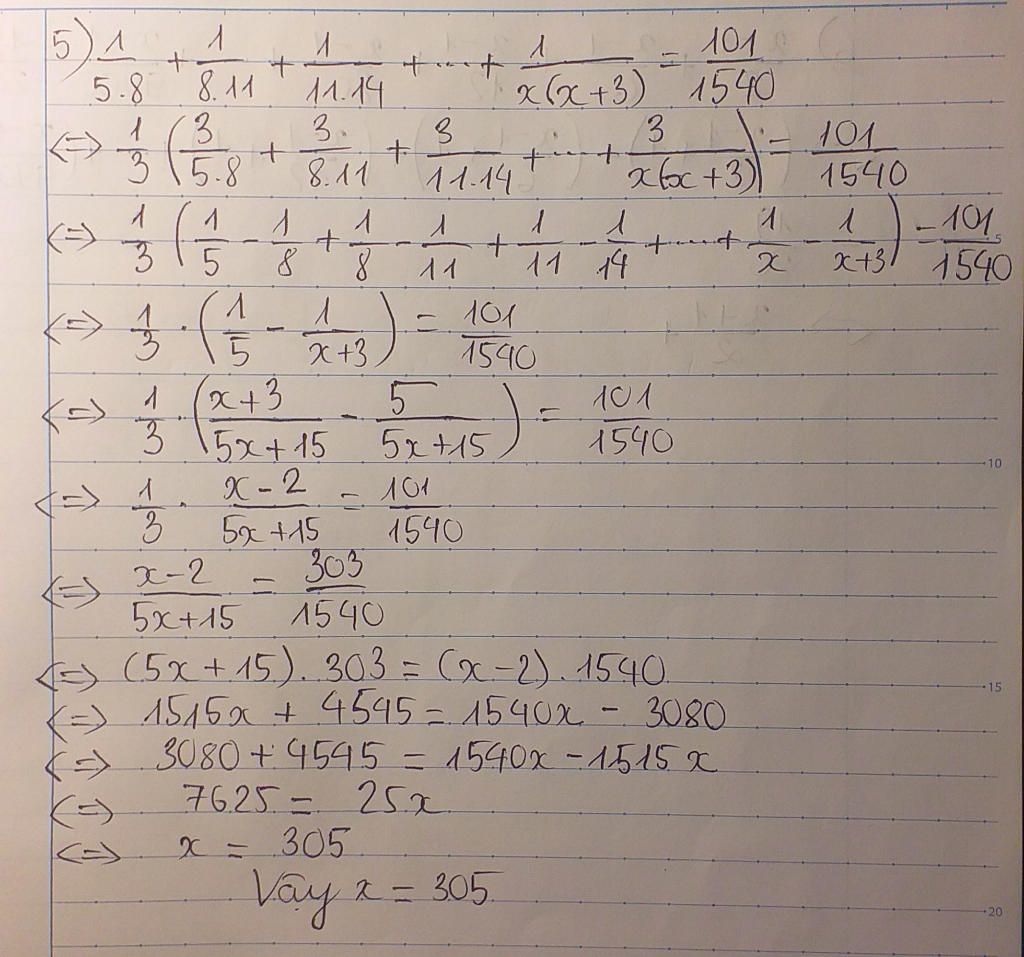 5) 1/5.8 + 1/8.11 + 1/11.14 + ... + 1/x(x+3) = 101/1540
<=> 1/3 (3/5.8 + 3/8.11 + 3/11.14 + ... + 3/x(x+3)) = 101/1540
<=> 1/3 (1/5 - 1/8 + 1/8 - 1/11 + 1/11 - 1/14 + ... + 1/x - 1/x+3) = 101/1540
<=> 1/3 . (1/5 - 1/x+3) = 101/1540
<=> 1/3 . (x+3/5x+15 - 5/5x+15) = 101/1540
<=> 1/3 . x-2/5x+15 = 101/1540
<=> x-2/5x+15 = 303/1540
<=> (5x+15).303 = (x-2).1540
<=> 1515x + 4545 = 1540x - 3080
<=> 3080 + 4545 = 1540x - 1515x
<=> 7625 = 25x
<=> x = 305
Vậy x = 305
5
10
15
20